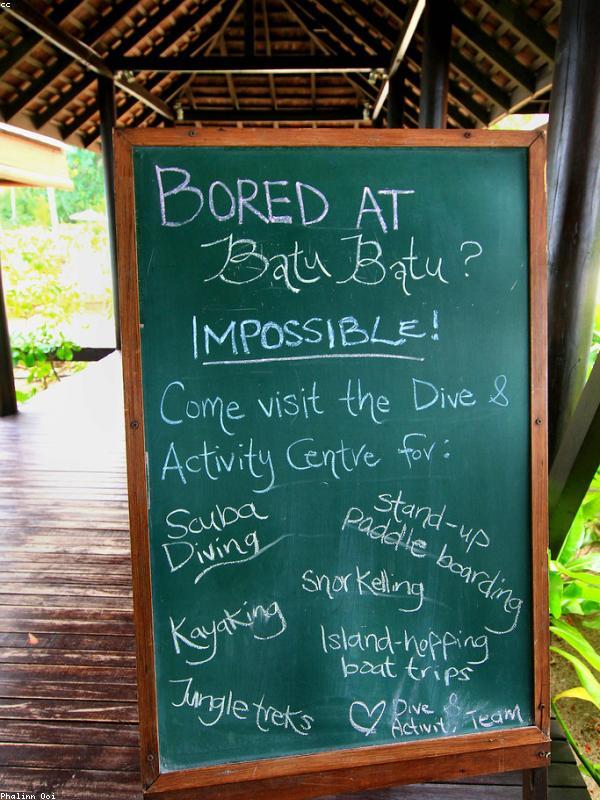 cc
BORED AT
Batu Batu?
IMPOSSIBLE!
Come visit the Dive &
Activity Centre for:
Scuba
Diving
Stand-up
Paddle boarding
Snorkelling
Kayaking
Island-hopping
boat trips
Jungle treks
♡ Dive &
Activit. Team
Phalinn Ooi